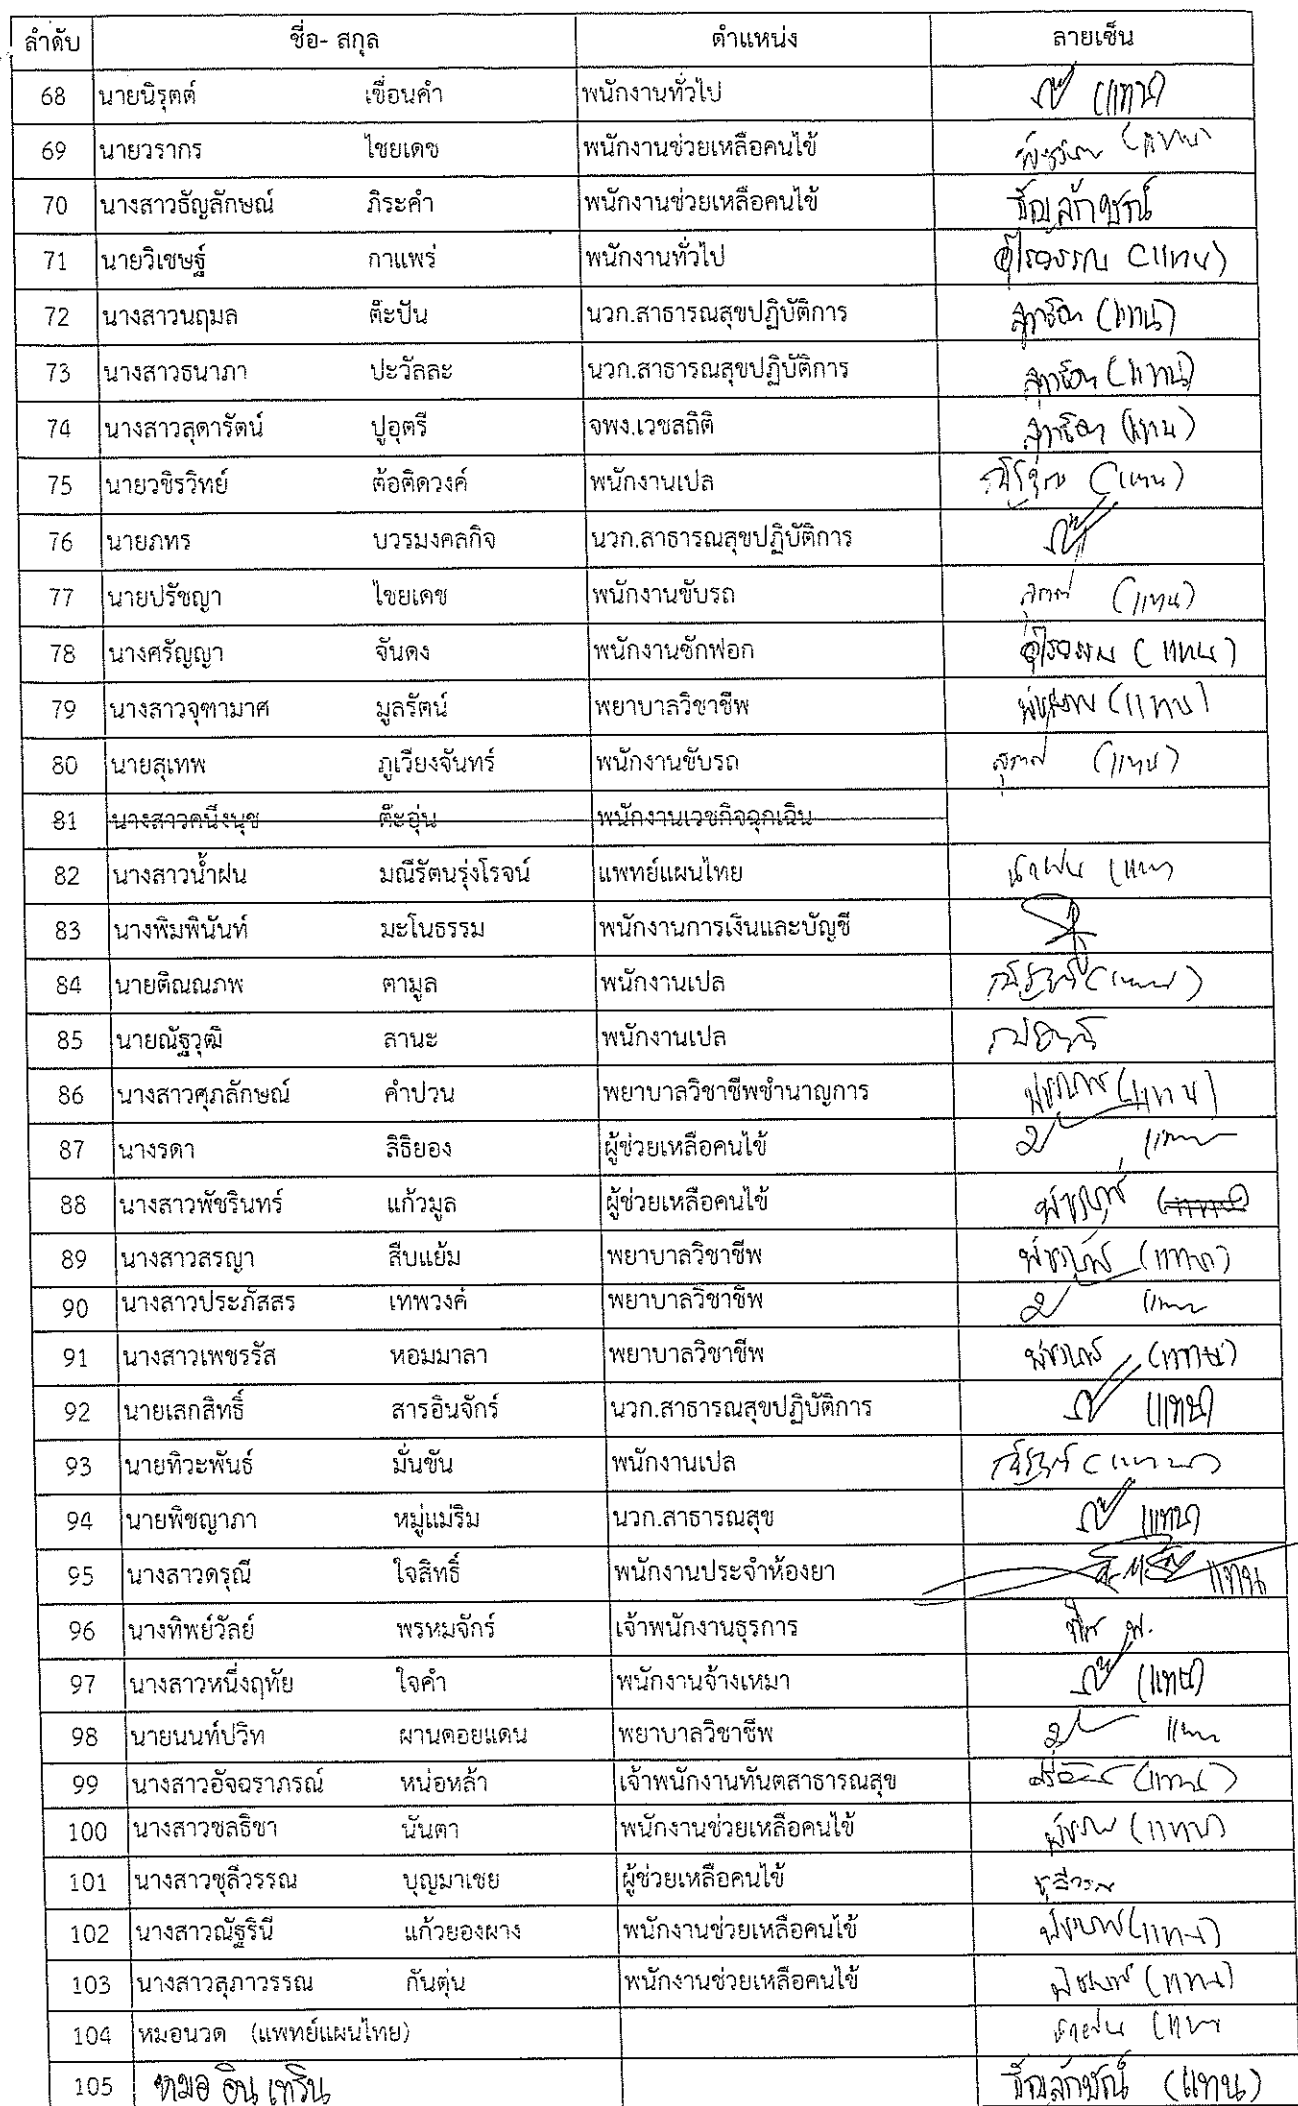 ลำดับ ชื่อ- สกุล ตำแหน่ง ลายเซ็น
68 นายนิรุตต์ เขื่อนคำ พนักงานทั่วไป (แทน)
69 นายวรากร ไชยเดช พนักงานช่วยเหลือคนไข้ (แทน)
70 นางสาวธัญลักษณ์ ภิระคำ พนักงานช่วยเหลือคนไข้ ธัญลักษณ์
71 นายวิเชษฐ์ กาแพร่ พนักงานทั่วไป อุไรวรรณ (แทน)
72 นางสาวนฤมล ต๊ะปัน นวก.สาธารณสุขปฏิบัติการ (แทน)
73 นางสาวธนาภา ปะวัลละ นวก.สาธารณสุขปฏิบัติการ (แทน)
74 นางสาวสุดารัตน์ ปูอุตรี จพง.เวชสถิติ (แทน)
75 นายวชิรวิทย์ ต้อติดวงค์ พนักงานเปล (แทน)
76 นายภทร บวรมงคลกิจ นวก.สาธารณสุขปฏิบัติการ
77 นายปรัชญา ไชยเดช พนักงานขับรถ (แทน)
78 นางศรัญญา จันดง พนักงานซักฟอก อุไรวรรณ (แทน)
79 นางสาวจุฑามาศ มูลรัตน์ พยาบาลวิชาชีพ (แทน)
80 นายสุเทพ ภูเวียงจันทร์ พนักงานขับรถ (แทน)
81 นางสาวคนึงนุช ต๊ะอุ่น พนักงานเวชกิจฉุกเฉิน
82 นางสาวน้ำฝน มณีรัตนรุ่งโรจน์ แพทย์แผนไทย น้ำฝน (แทน
83 นางพิมพินันท์ มะโนธรรม พนักงานการเงินและบัญชี
84 นายติณณภพ ตามูล พนักงานเปล (แทน)
85 นายณัฐวุฒิ ลานะ พนักงานเปล
86 นางสาวศุภลักษณ์ คำปวน พยาบาลวิชาชีพชำนาญการ (แทน)
87 นางรดา สิธิยอง ผู้ช่วยเหลือคนไข้ แทน
88 นางสาวพัชรินทร์ แก้วมูล ผู้ช่วยเหลือคนไข้
89 นางสาวสรญา สืบแย้ม พยาบาลวิชาชีพ (แทน)
90 นางสาวประภัสสร เทพวงค์ พยาบาลวิชาชีพ แทน
91 นางสาวเพชรรัส หอมมาลา พยาบาลวิชาชีพ (แทน)
92 นายเสกสิทธิ์ สารอินจักร์ นวก.สาธารณสุขปฏิบัติการ (แทน)
93 นายทิวะพันธ์ มั่นขัน พนักงานเปล (แทน)
94 นายพิชญาภา หมู่แม่ริม นวก.สาธารณสุข (แทน)
95 นางสาวดรุณี ใจสิทธิ์ พนักงานประจำห้องยา แทน
96 นางทิพย์วัลย์ พรหมจักร์ เจ้าพนักงานธุรการ
97 นางสาวหนึ่งฤทัย ใจคำ พนักงานจ้างเหมา (แทน)
98 นายนนท์ปวิท ผานดอยแดน พยาบาลวิชาชีพ แทน
99 นางสาวอัจฉราภรณ์ หน่อหล้า เจ้าพนักงานทันตสาธารณสุข (แทน)
100 นางสาวชลธิชา นันตา พนักงานช่วยเหลือคนไข้ (แทน)
101 นางสาวชุลีวรรณ บุญมาเชย ผู้ช่วยเหลือคนไข้ ชุลีวรรณ
102 นางสาวณัฐรินี แก้วยองผาง พนักงานช่วยเหลือคนไข้ (แทน)
103 นางสาวสุภาวรรณ กันตุ่น พนักงานช่วยเหลือคนไข้ (แทน)
104 หมอนวด (แพทย์แผนไทย) น้ำฝน (แทน
105 หมอ อินเทริน ธัญลักษณ์ (แทน)